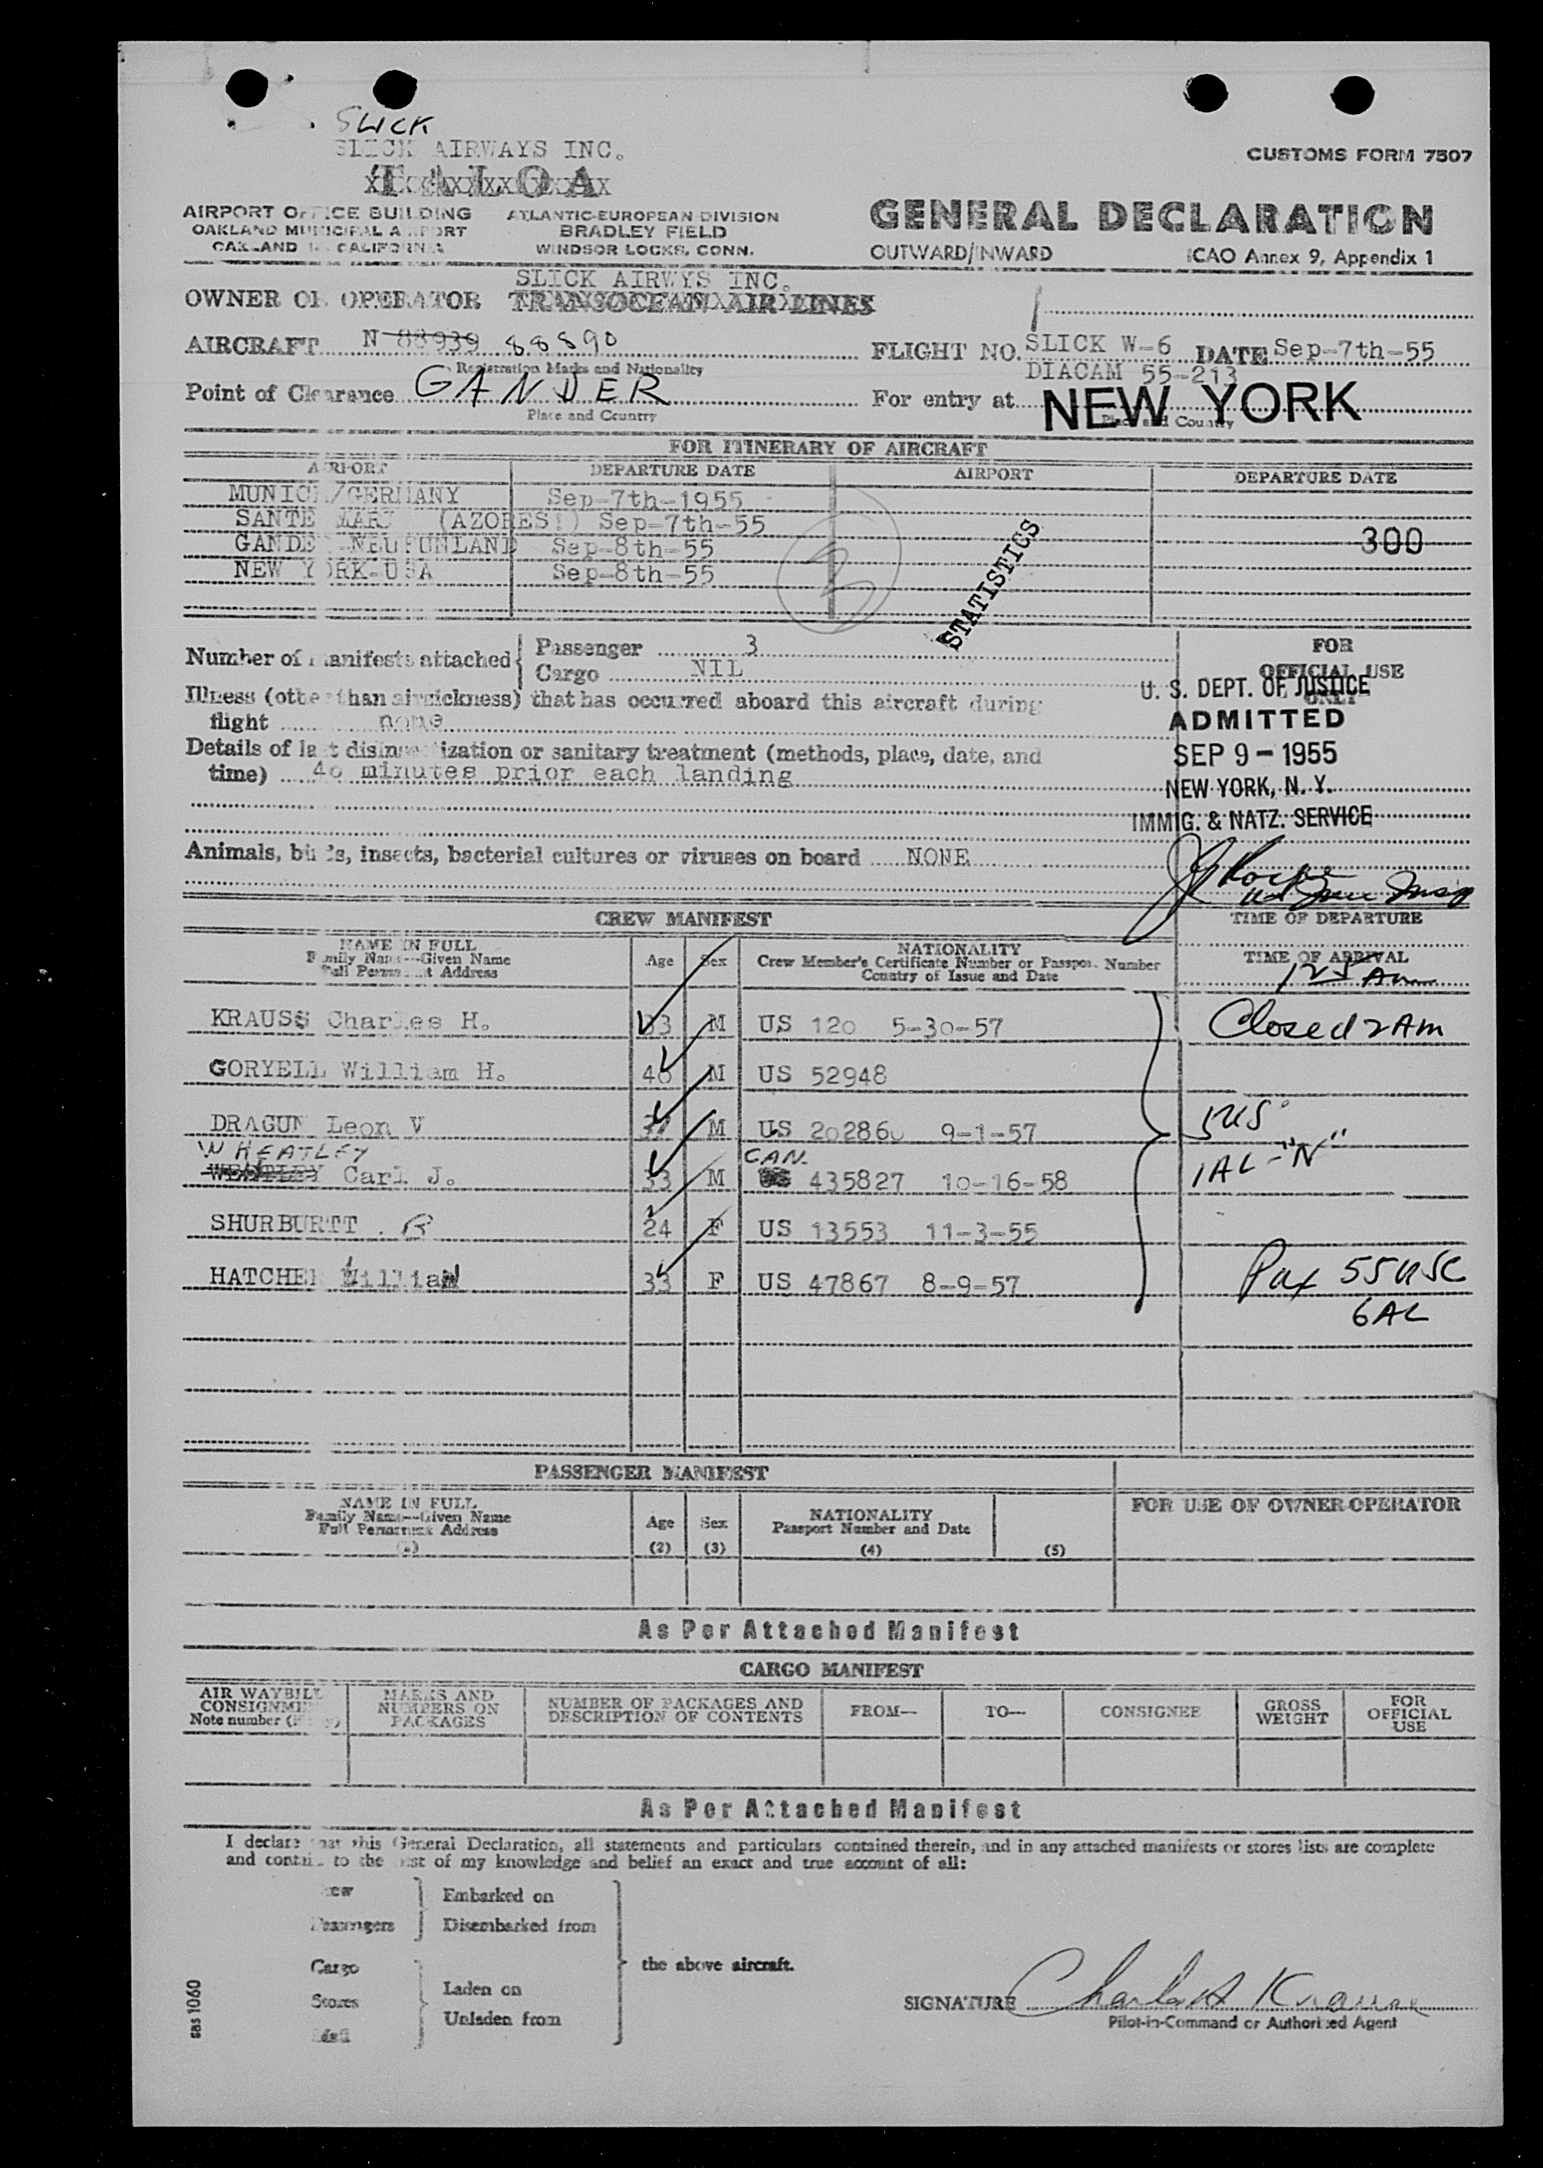 SLICK
SLICK AIRWAYS INC.
TALOA
CUSTOMS FORM 7507
AIRPORT OFFICE BUILDING
OAKLAND MUNICIPAL AIRPORT
OAKLAND CALIFORNIA
ATLANTIC-EUROPEAN DIVISION
BRADLEY FIELD
WINDSOR LOCKS, CONN.
GENERAL DECLARATION
OUTWARD/INWARD ICAO Annex 9, Appendix 1
SLICK AIRWYS INC.
OWNER OR OPERATOR TRANSOCEAN AIR LINES
AIRCRAFT N 88939 88890
Registration Marks and Nationality
FLIGHT NO. SLICK W-6 DATE Sep-7th-55
DIACAM 55-213
Point of Clearance GANDER
Place and Country
For entry at NEW YORK
Place and Country
FOR ITINERARY OF AIRCRAFT
AIRPORT DEPARTURE DATE AIRPORT DEPARTURE DATE
MUNICH/GERMANY Sep-7th-1955
SANTE MARY (AZORES!) Sep-7th-55
GANDER-NEUFUNLAND Sep-8th-55
NEW YORK-USA Sep-8th-55
3
STATISTICS
300
Number of manifests attached
Passenger 3
Cargo NIL
Illness (other than airsickness) that has occurred aboard this aircraft during
flight none
Details of last disinsectization or sanitary treatment (methods, place, date, and
time) 40 minutes prior each landing
Animals, birds, insects, bacterial cultures or viruses on board NONE
FOR
OFFICIAL USE
ONLY
U. S. DEPT. OF JUSTICE
ADMITTED
SEP 9 - 1955
NEW YORK, N. Y.
IMMIG. & NATZ. SERVICE
CREW MANIFEST
TIME OF DEPARTURE
NAME IN FULL
Family Name--Given Name
Full Permanent Address
Age Sex
NATIONALITY
Crew Member's Certificate Number or Passport Number
Country of Issue and Date
TIME OF ARRIVAL
125 Am
KRAUSS Charles H. 33 M US 120 5-30-57
Closed 2 AM
GORYELL William H. 46 M US 52948
DRAGUN Leon V M US 202860 9-1-57
5US
WHEATLEY CAN.
WEATLEY Carl J. 33 M 435827 10-16-58
1AL-"N"
SHURBURTT . R 24 F US 13553 11-3-55
HATCHER William 33 F US 47867 8-9-57
Pax 55 USC
6AL
PASSENGER MANIFEST
NAME IN FULL
Family Name--Given Name
Full Permanent Address
(1)
Age
(2)
Sex
(3)
NATIONALITY
Passport Number and Date
(4)
(5)
FOR USE OF OWNER-OPERATOR
As Per Attached Manifest
CARGO MANIFEST
AIR WAYBILL
CONSIGNMENT
Note number
MARKS AND
NUMBERS ON
PACKAGES
NUMBER OF PACKAGES AND
DESCRIPTION OF CONTENTS
FROM—
TO—
CONSIGNEE
GROSS
WEIGHT
FOR
OFFICIAL
USE
As Per Attached Manifest
I declare that this General Declaration, all statements and particulars contained therein, and in any attached manifests or stores lists are complete
and contain to the best of my knowledge and belief an exact and true account of all:
Crew
Passengers
Embarked on
Disembarked from
Cargo
Stores
Mail
Laden on
Unladen from
the above aircraft.
SIGNATURE Charles H Krauss
Pilot-in-Command or Authorized Agent
sas 1060